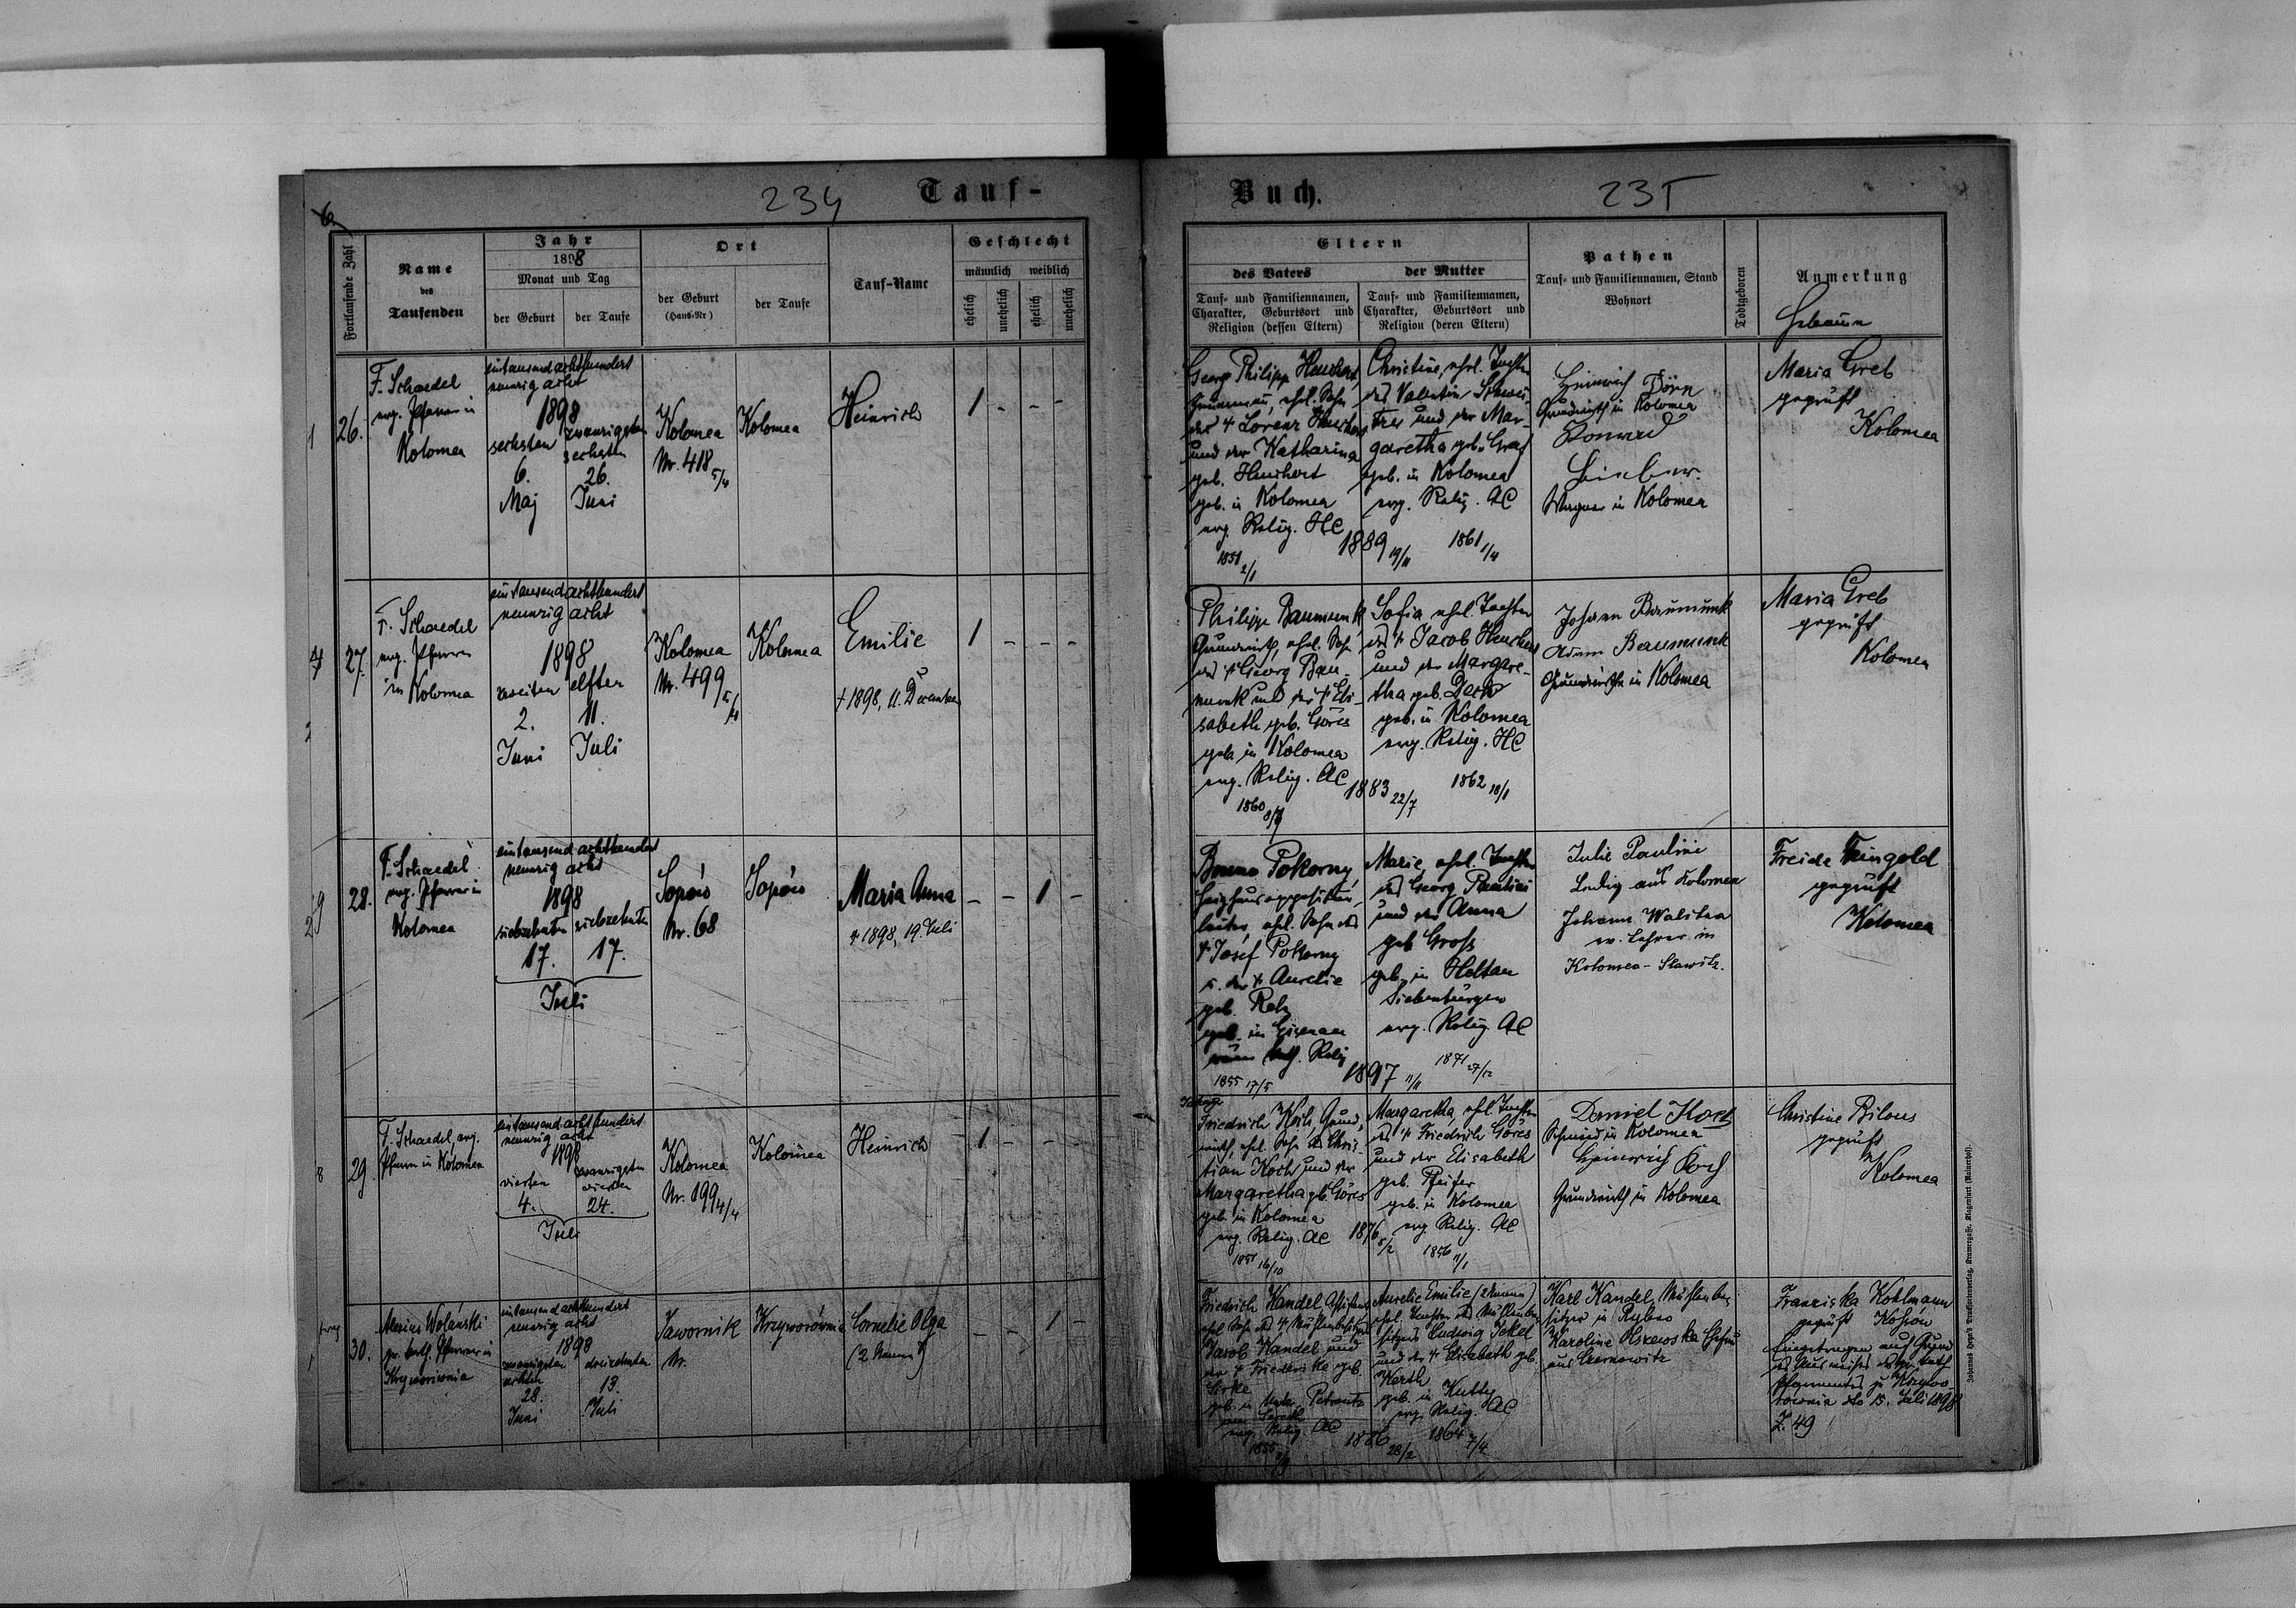 234
Tauf-
Buch.
235
Fortlaufende Zahl
Name
des
Taufenden
Jahr
1898
Monat und Tag
der Geburt
der Taufe
Ort
der Geburt
(Haus-Nr)
der Taufe
Tauf-Name
Geschlecht
männlich
weiblich
ehelich
unehelich
ehelich
unehelich
Eltern
des Vaters
Tauf- und Familiennamen,
Charakter, Geburtsort und
Religion (dessen Eltern)
der Mutter
Tauf- und Familiennamen,
Charakter, Geburtsort und
Religion (deren Eltern)
Pathen
Tauf- und Familiennamen, Stand
Wohnort
Todtgeboren
Anmerkung
Hebamme
26.
F. Schaedel
evg. Pfarrer in
Kolomea
eintausendachthundert
neunzig acht
1898
sechsten
6.
Maj
zwanzigsten
sechsten
26.
Juni
Kolomea
Nr. 418 5/4
Kolomea
Heinrich
1 - - -
Georg Philipp Heuchert
ehel. Sohn
des † Lorenz Heuchert
und der Katharina
geb. Heuchert
geb. in Kolomea
evg. Relig. HC
1851 2/1
1889 19/11
Christine, ehel. Tochter
des Valentin Schwei-
tzer und der Mar-
garetha geb. Graf
geb. in Kolomea
evg. Relig. AC
1861 1/4
Heinrich Dörn
Grundwirth in Kolomea
Konrad
Wagner in Kolomea
Maria Greb
geprüft
Kolomea
27.
F. Schaedel
evg. Pfarrer
in Kolomea
eintausendachthundert
neunzig acht
1898
zweiten
2.
Juni
elften
11.
Juli
Kolomea
Nr. 499 5/4
Kolomea
Emilie
† 1898, 11. Dezember
1 - - -
Philipp Baumunk
Grundwirth, ehel. Sohn
des † Georg Bau-
munk und der † Eli-
sabeth geb. Göres
geb. in Kolomea
evg. Relig. AC
1860 8/9
1883 22/7
Sofia ehel. Tochter
des † Jacob Heuchert
und der Margare-
tha geb. Derk
geb. in Kolomea
evg. Relig. HC
1862 18/1
Johann Baumunk
Adam Baumunk
Grundwirthe in Kolomea
Maria Greb
geprüft
Kolomea
28.
F. Schaedel
evg. Pfarrer in
Kolomea
eintausend achthundert
neunzig acht
1898
siebzehnten
17.
siebzehnten
17.
Juli
Sopów
Nr. 68
Sopów
Maria Anna
† 1898, 19. Juli
- - 1 -
Bruno Pokorny,
leiter, ehel. Sohn des
† Josef Pokorny
u. der † Aurelie
geb. Relz
geb. in Eisenau
kath. Relig
1855 17/5
1897 11/11
Marie, ehel. Tochter
des Georg Paulini
und der Anna
geb Gross
geb. in Heltau
Siebenbürgen
evg. Relig AC
1871 27/12
Julie Paulini
Ledig aus Kolomea
Johann Walitza
ev. Lehrer in
Kolomea-Slawitz.
Freide Feingold
geprüft
Kolomea
29.
F. Schaedel, evg.
Pfarrer in Kolomea
eintausend achthundert
neunzig acht
1898
vierten
4.
zwanzigsten
vierten
24.
Juli
Kolomea
Nr. 199 4/4
Kolomea
Heinrich
1 - - -
Friedrich Koch, Grund-
wirth, ehel. Sohn des Chris-
tian Koch und der
Margaretha geb. Göres
geb. in Kolomea
evg. Relig. AC
1851 16/10
1876 5/2
Margaretha, ehel. Tochter
des † Friedrich Göres
und der Elisabeth
geb. Pfeifer
geb. in Kolomea
evg Relig. AC
1856 11/1
Daniel Koch
Schmied in Kolomea
Heinrich Koch
Grundwirth in Kolomea
Christine Bilous
geprüft
Kolomea
30.
Alexius Wolanski
gr. kath. Pfarrer in
Krzyworownia
eintausend achthundert
neunzig acht
1898
zwanzigsten
achten
28.
Juni
dreizehnten
13.
Juli
Jawornik
Nr.
Krzyworównia
Cornelie Olga
(2 Namen)
- - 1 -
Friedrich Kandel
ehel Sohn des † Mühlenbesitzers
Jacob Kandel und
der † Friederike geb.
geb. in Unter Petroutz
evg. Relig. AC
1886 28/2
Aurelie Emilie (2 Namen)
ehel. Tochter des Mühlenbe-
sitzers Ludwig Jekel
und der † Elisabeth geb.
Kerth
geb. in Kutty
evg. Relig. AC
1864 7/4
Karl Kandel, Mühlenbe-
sitzer in Rybno
Karoline Olszewska
aus Czernowitz
Franziska Kohlmann
geprüft Kossów
Eingetragen auf Grund
des Ausweises des gr. kath
Pfarramtes zu Krzywo-
rownia dto 15. Juli 1898
Z. 49